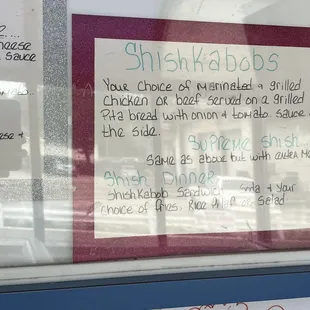 cheese
sauce
Shish Kabobs
Your choice of marinated & grilled
chicken or beef served on a grilled
Pita bread with onion & tomato. sauce on
the side.
Supreme shish
Same as above but with extra
Shish Dinner
Shishkabob Sandwich Soda & your
choice of fries, Rice or Salad